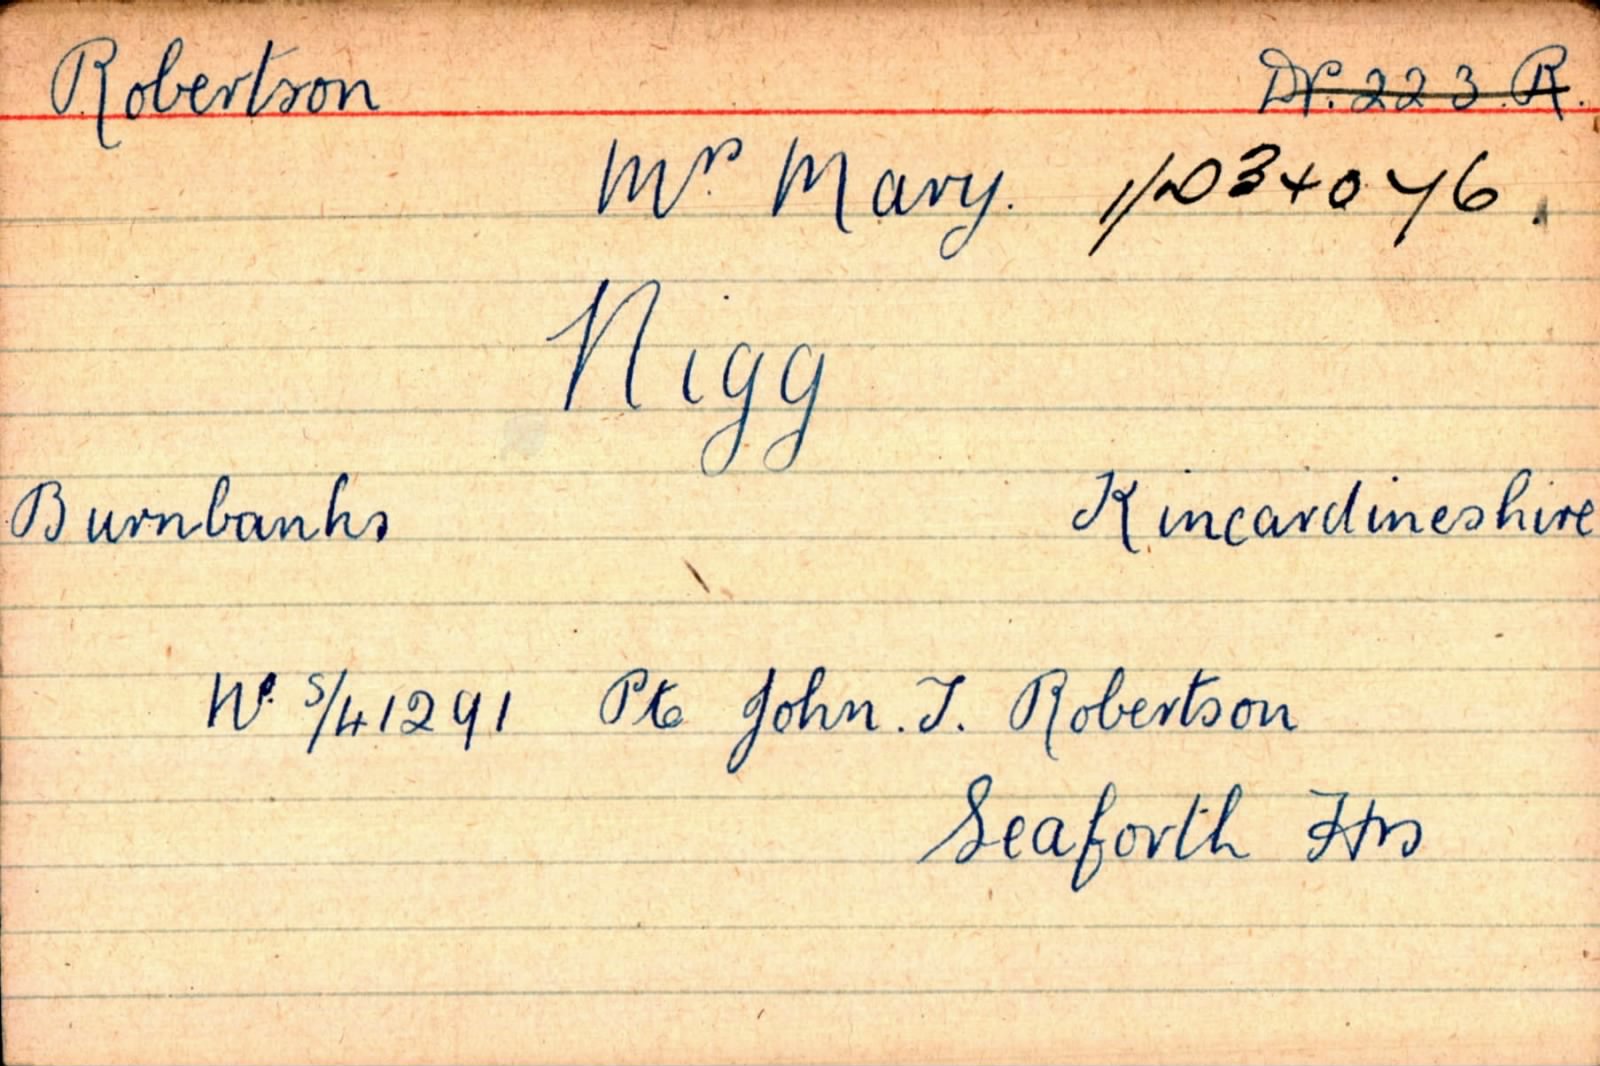 Robertson Dr. 223. R.
Mrs Mary. 1/D34076.
Nigg
Burnbanks Kincardineshire
No. S/41291 Pte John. T. Robertson
Seaforth Hrs